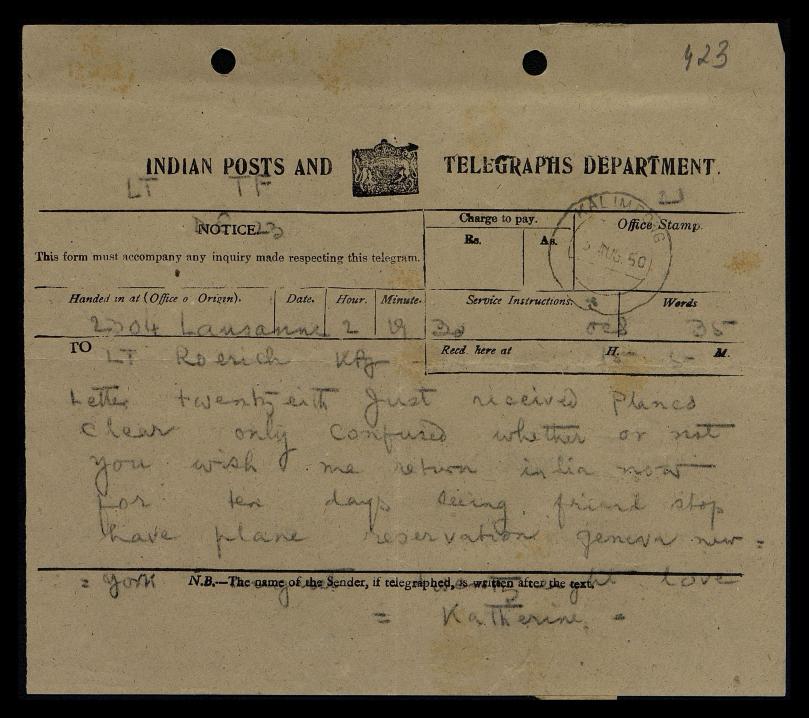 423
INDIAN POSTS AND TELEGRAPHS DEPARTMENT.
LT TF
NOTICE. 23
This form must accompany any inquiry made respecting this telegram.
Charge to pay.
Rs. As.
Office Stamp.
KALIMPONG
AUG. 50
Handed in at (Office o Origin). Date. Hour. Minute. Service Instructions. Words
Lausanne 2 19 35
TO LT Roerich KPg
Recd. here at H. M.
Letter twenty eith Just received Planes
clear only confused whether or not
you wish me return india now
For ten days seeing friend stop
have plane reservation geneva new =
= york love
N.B.—The name of the Sender, if telegraphed, is written after the text.
= Katherine. =